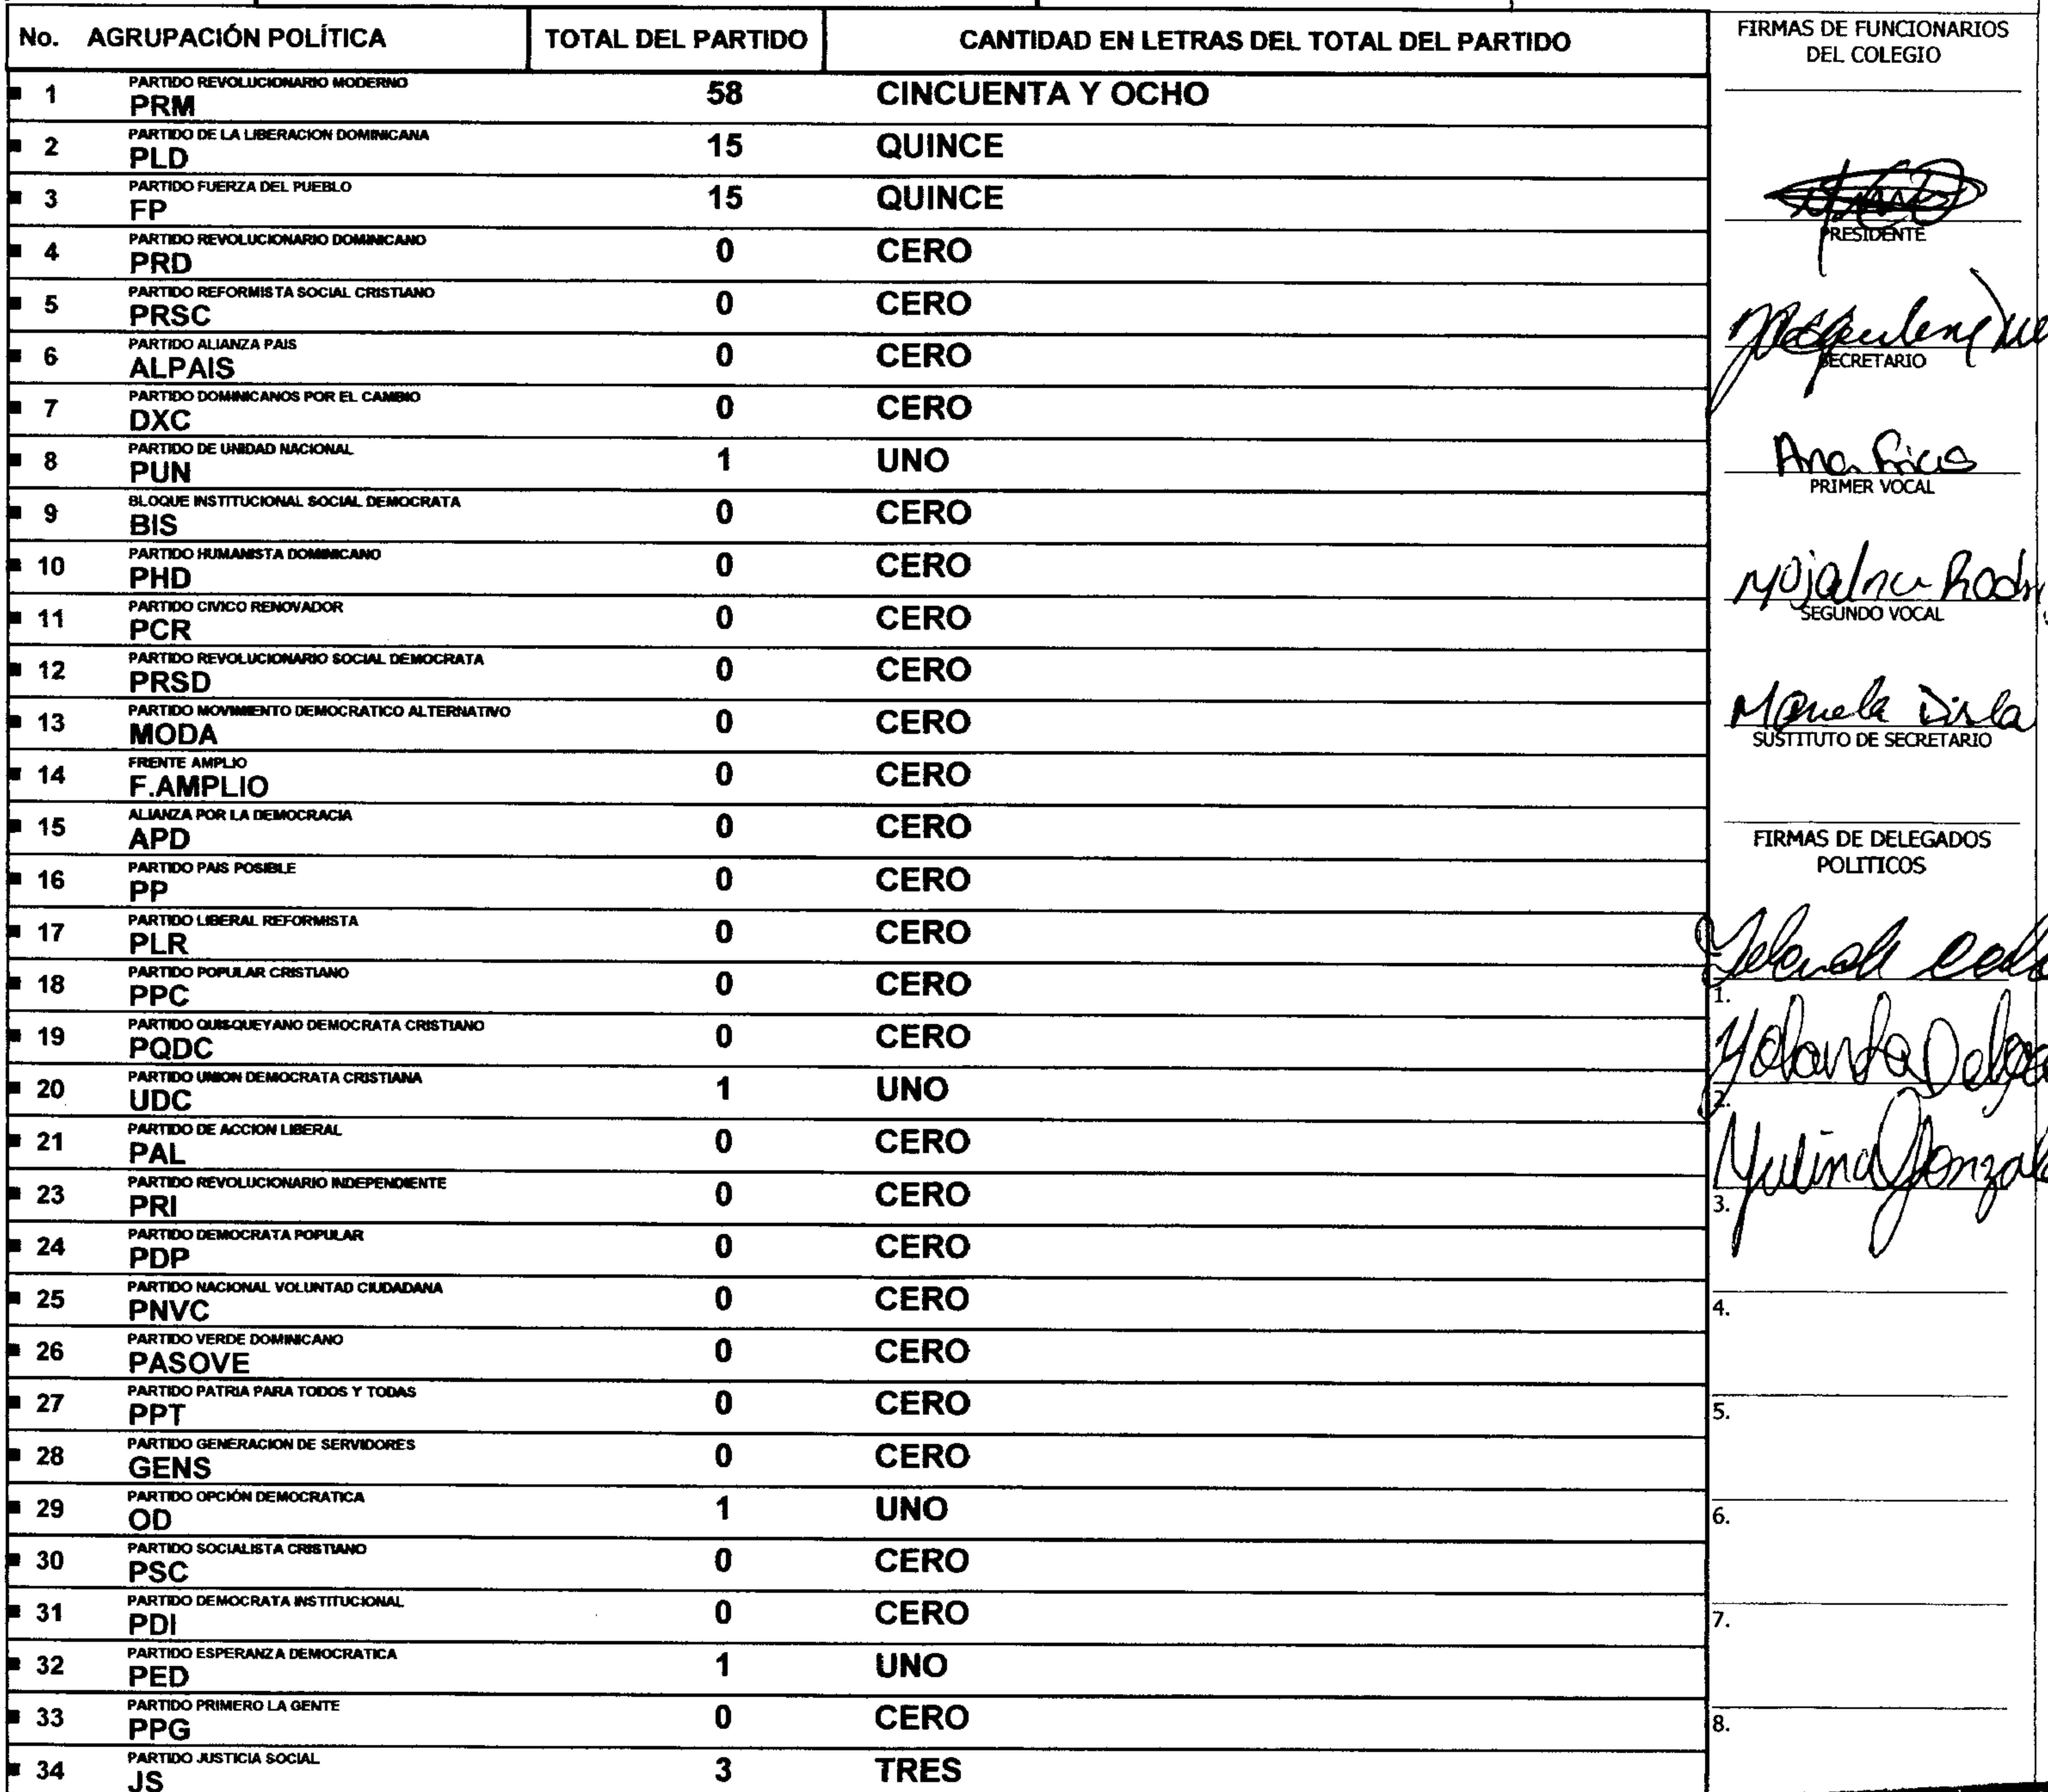 No. AGRUPACIÓN POLÍTICA TOTAL DEL PARTIDO CANTIDAD EN LETRAS DEL TOTAL DEL PARTIDO
1 PARTIDO REVOLUCIONARIO MODERNO
PRM 58 CINCUENTA Y OCHO
2 PARTIDO DE LA LIBERACION DOMINICANA
PLD 15 QUINCE
3 PARTIDO FUERZA DEL PUEBLO
FP 15 QUINCE
4 PARTIDO REVOLUCIONARIO DOMINICANO
PRD 0 CERO
5 PARTIDO REFORMISTA SOCIAL CRISTIANO
PRSC 0 CERO
6 PARTIDO ALIANZA PAIS
ALPAIS 0 CERO
7 PARTIDO DOMINICANOS POR EL CAMBIO
DXC 0 CERO
8 PARTIDO DE UNIDAD NACIONAL
PUN 1 UNO
9 BLOQUE INSTITUCIONAL SOCIAL DEMOCRATA
BIS 0 CERO
10 PARTIDO HUMANISTA DOMINICANO
PHD 0 CERO
11 PARTIDO CIVICO RENOVADOR
PCR 0 CERO
12 PARTIDO REVOLUCIONARIO SOCIAL DEMOCRATA
PRSD 0 CERO
13 PARTIDO MOVIMIENTO DEMOCRATICO ALTERNATIVO
MODA 0 CERO
14 FRENTE AMPLIO
F.AMPLIO 0 CERO
15 ALIANZA POR LA DEMOCRACIA
APD 0 CERO
16 PARTIDO PAIS POSIBLE
PP 0 CERO
17 PARTIDO LIBERAL REFORMISTA
PLR 0 CERO
18 PARTIDO POPULAR CRISTIANO
PPC 0 CERO
19 PARTIDO QUISQUEYANO DEMOCRATA CRISTIANO
PQDC 0 CERO
20 PARTIDO UNION DEMOCRATA CRISTIANA
UDC 1 UNO
21 PARTIDO DE ACCION LIBERAL
PAL 0 CERO
23 PARTIDO REVOLUCIONARIO INDEPENDIENTE
PRI 0 CERO
24 PARTIDO DEMOCRATA POPULAR
PDP 0 CERO
25 PARTIDO NACIONAL VOLUNTAD CIUDADANA
PNVC 0 CERO
26 PARTIDO VERDE DOMINICANO
PASOVE 0 CERO
27 PARTIDO PATRIA PARA TODOS Y TODAS
PPT 0 CERO
28 PARTIDO GENERACION DE SERVIDORES
GENS 0 CERO
29 PARTIDO OPCIÓN DEMOCRATICA
OD 1 UNO
30 PARTIDO SOCIALISTA CRISTIANO
PSC 0 CERO
31 PARTIDO DEMOCRATA INSTITUCIONAL
PDI 0 CERO
32 PARTIDO ESPERANZA DEMOCRATICA
PED 1 UNO
33 PARTIDO PRIMERO LA GENTE
PPG 0 CERO
34 PARTIDO JUSTICIA SOCIAL
JS 3 TRES
FIRMAS DE FUNCIONARIOS
DEL COLEGIO
PRESIDENTE
SECRETARIO
Ana
PRIMER VOCAL
SEGUNDO VOCAL
Manuela Disla
SUSTITUTO DE SECRETARIO
FIRMAS DE DELEGADOS
POLITICOS
1.
Yolanda
2.
3.
4.
5.
6.
7.
8.